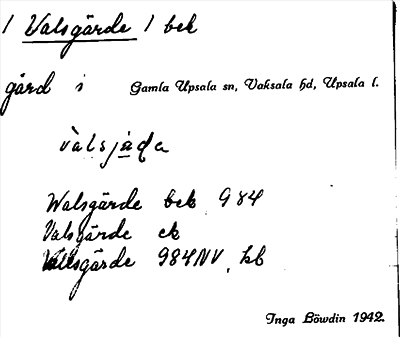 / Valsgärde / bek
gård i Gamla Upsala sn, Vaksala hd, Upsala l.
vàlsjàɖa
Walsgärde bek 984
Valsgärde ek
Vallsgärde 984NV, hb
Inga Böwdin 1942.